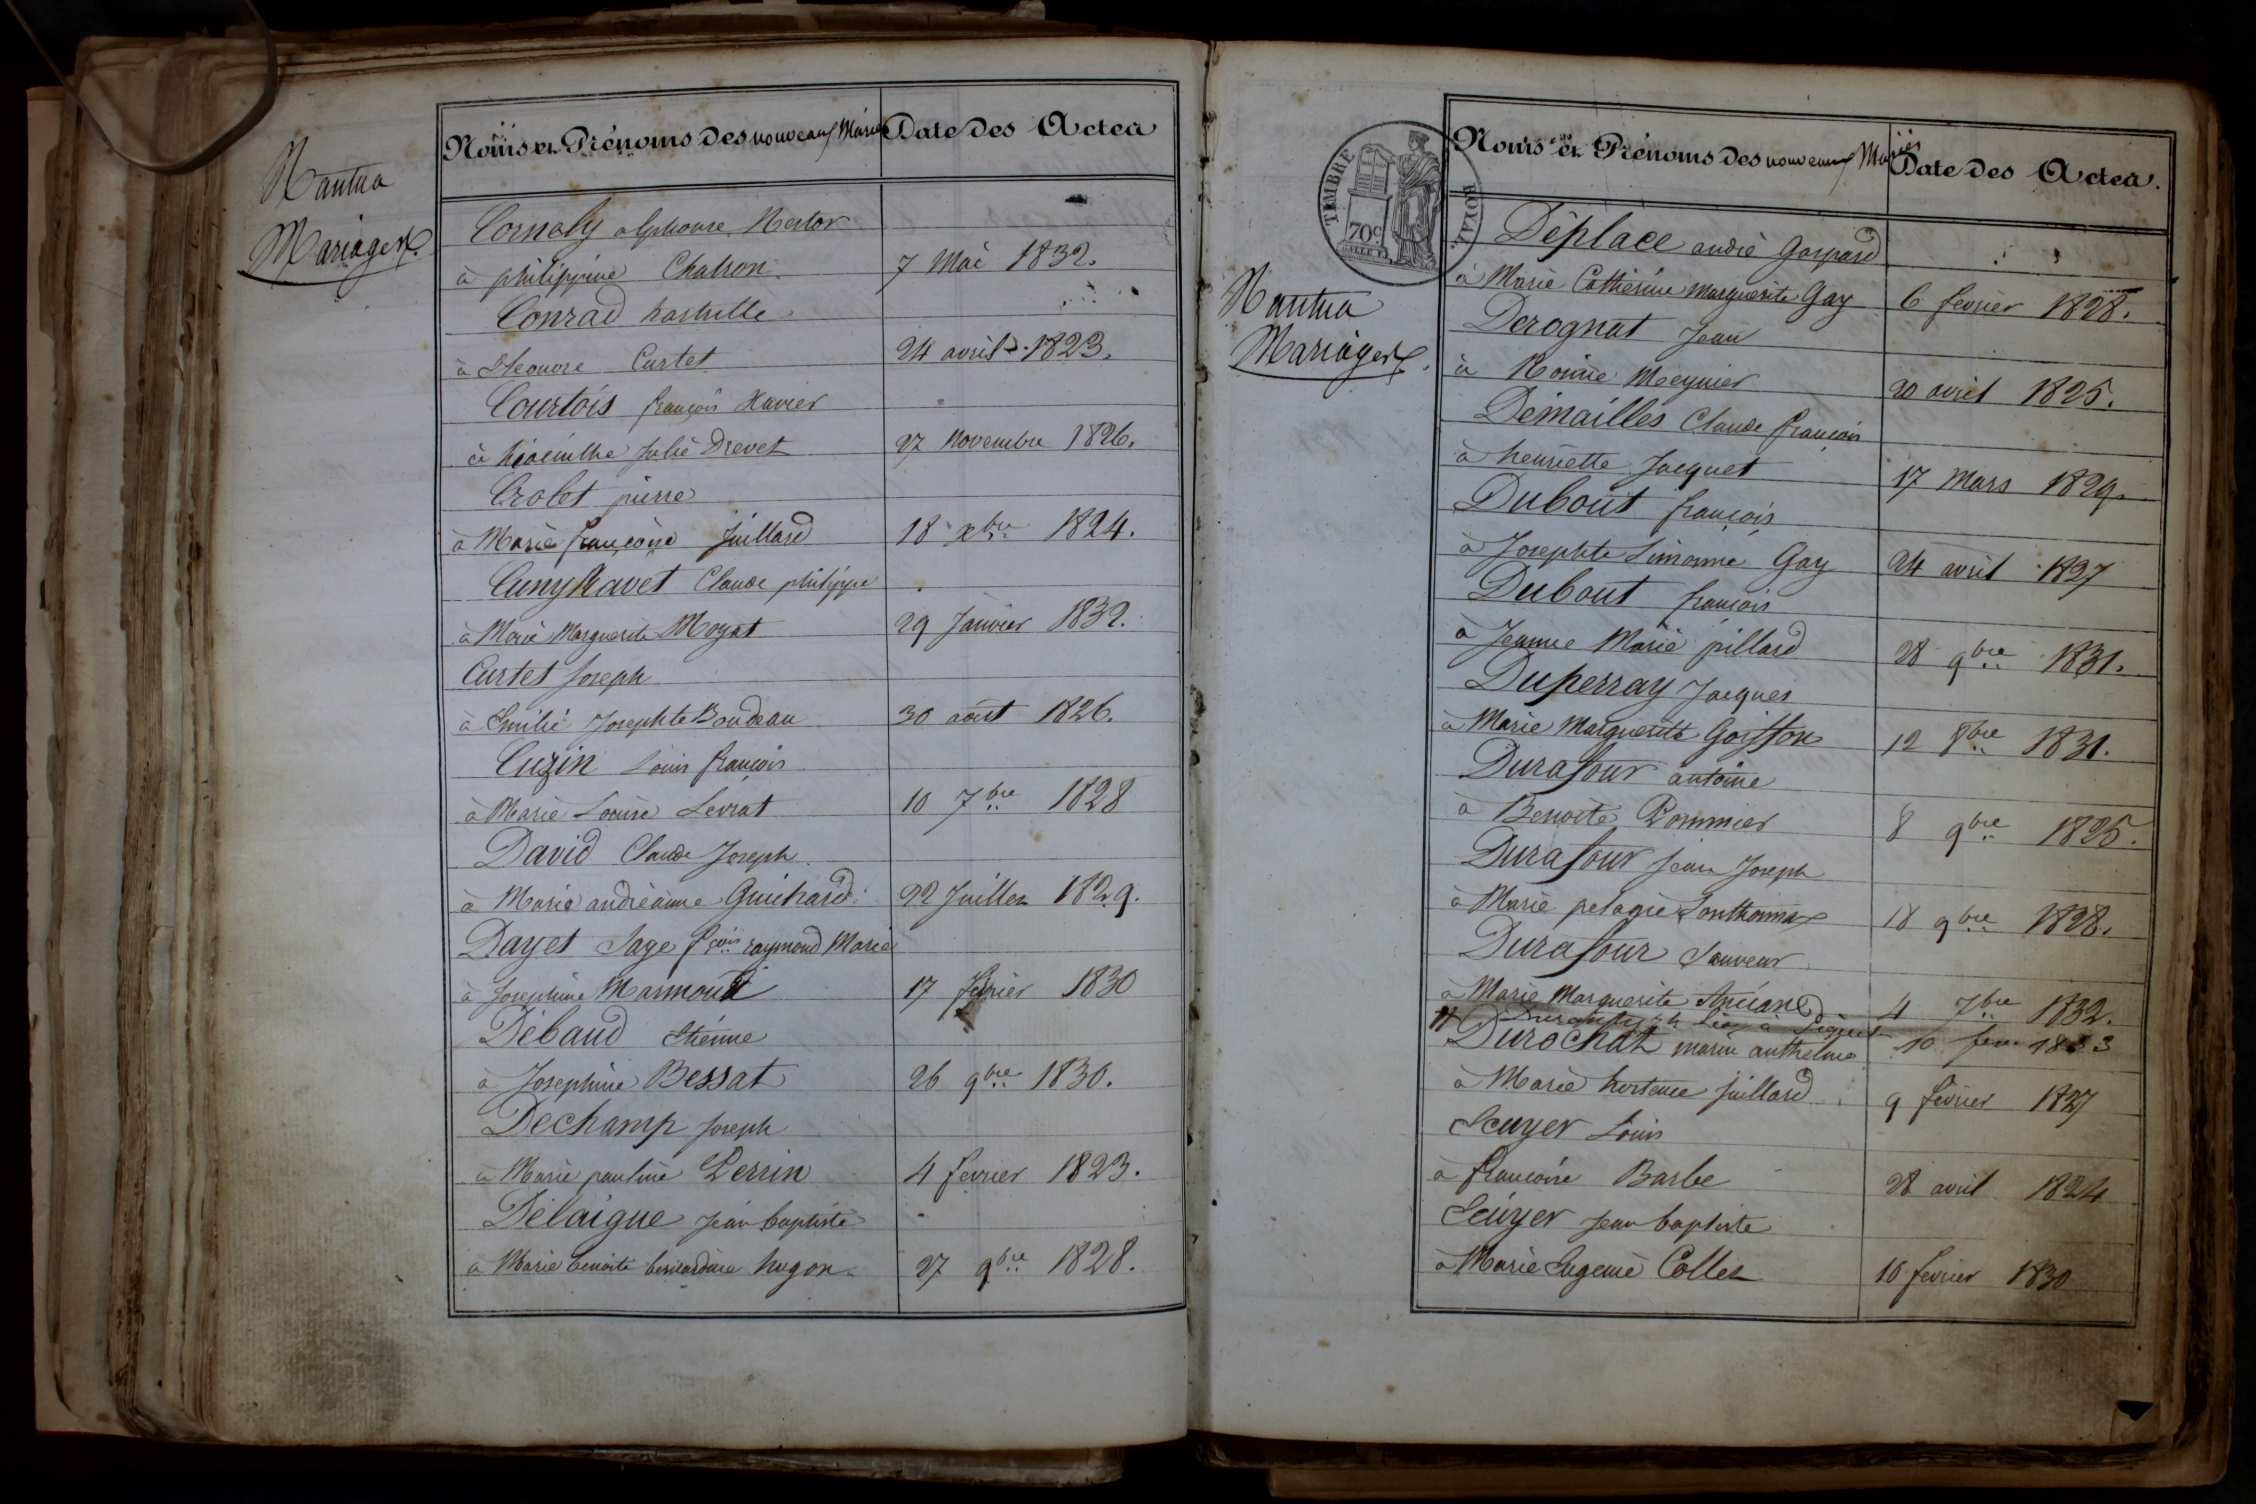 Nantua
Mariages
Noms et Prénoms des nouveaux Mariés Date des Actes
Comoly alphonse Nestor
à philippine Chatron 7 Mai 1832.
Conrad
à Eleonore Curtet 24 avril 1823.
Courtois françois Xavier
à hiacinthe Julie Drevet 27 Novembre 1826.
Crolet pierre
à Marie françoise Juillard 18 xbre 1824.
Cuny Ravet Claude philippe
à Marie Marguerite Moyat 29 Janvier 1832.
Curtet Joseph
à Emilie Josephte Boudeau 30 août 1826.
Cuzin Louis françois
à Marie Louise Levrat 10 7bre 1828
David Claude Joseph
à Marie andréanne Guichard 22 Juillet 1829.
Dayet Sage fçois raymond Marie
à Josephine Marmoud 17 fevrier 1830
Débaud Etienne
à Josephine Bessat 26 9bre 1830.
Dechamp Joseph
à Marie pauline Perrin 4 fevrier 1823.
Délaigue Jean baptiste
à Marie benoite bernardine hugon 27 9bre 1828.
TIMBRE ROYAL
70c
Nantua
Mariages
Noms et Prénoms des nouveaux Mariés Date des Actes.
Déplace andré Gaspard
à Marie Catherine Marguerite Gay 6 fevrier 1828.
Derognat Jean
à Meynier 20 avril 1825.
Démailles Claude françois
à henriette Jacquet 17 Mars 1829.
Dubout françois
à Josephte Simonne Gay 24 avril 1827
Dubout françois
à Jeanne Marie pillard 28 9bre 1831.
Duperray Jacques
à Marie Marguerite Goiffon 12 8bre 1831.
Durafour antoine
à Benoite Pommier 8 9bre 1825.
Durafour Jean Joseph
à Marie pelagie Sonthonnax 18 9bre 1828.
Durafour Sauveur
à Marie Marguerite 4 7bre 1832.
10 fevr 1833
Durochat marin anthelme
à Marie hortence Juillard 9 fevrier 1827
Ecuyer Louis
à françoise Barbe 28 avril 1824
Ecuyer Jean baptiste
à Marie Eugenie Collet 16 fevrier 1830